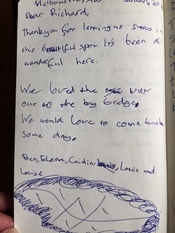 Dear Richard,
Thankyou for leaving us stay in
this beautiful spot It's been
wonderful here.
We loved the river
our to the big bridge
We would love to come back
some day.
Ben, Eileen, Caitlin, Louis and
Louise